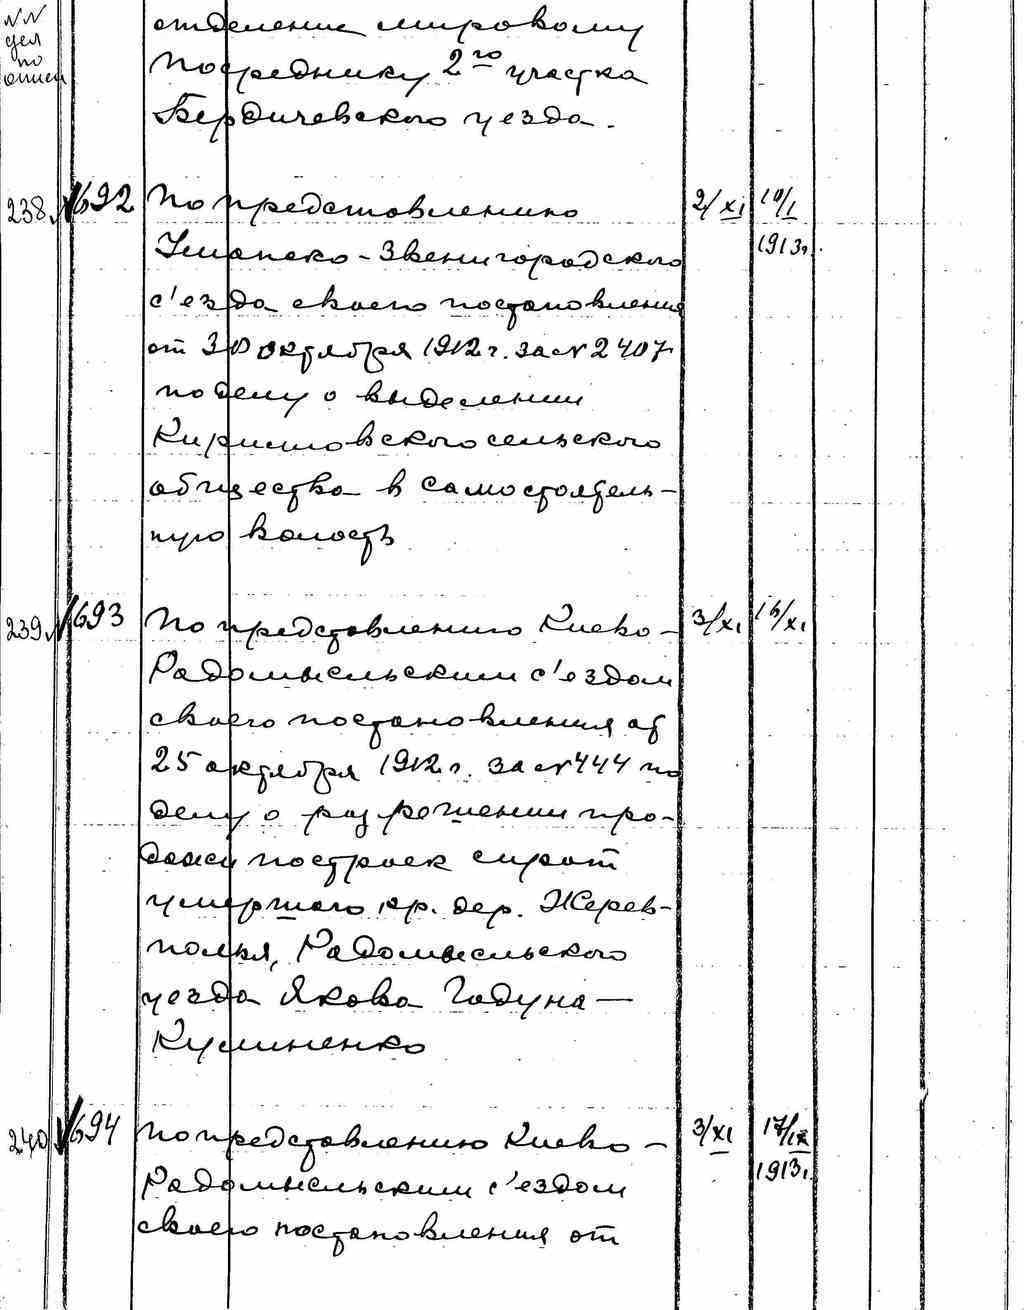 NN
дел
по
описи
отделение мировому
посреднику 2го участка
Бердичевского уезда.
238 N692 По представлению 2/XI 10/I
Уманско-Звенигородского 1913г.
с'езда своего постановления
от 30 октября 1912 г. за N 2407
по делу о выделении
сельского
общества в самостоятель-
ную волость
239 N693 По представлению Киево- 3/XI /XI
Радомысльским с'ездом
своего постановления от
25 октября 1912 г. за N 444 по
делу о разрешении про-
дажи построек сирот
умершего кр. дер. Жерев-
полья, Радомысльского
уезда Якова Годуна-
Кулиненко
240 N694 По представлению Киево- 3/XI 17/IX
Радомысльским с'ездом 1913г.
своего постановления от